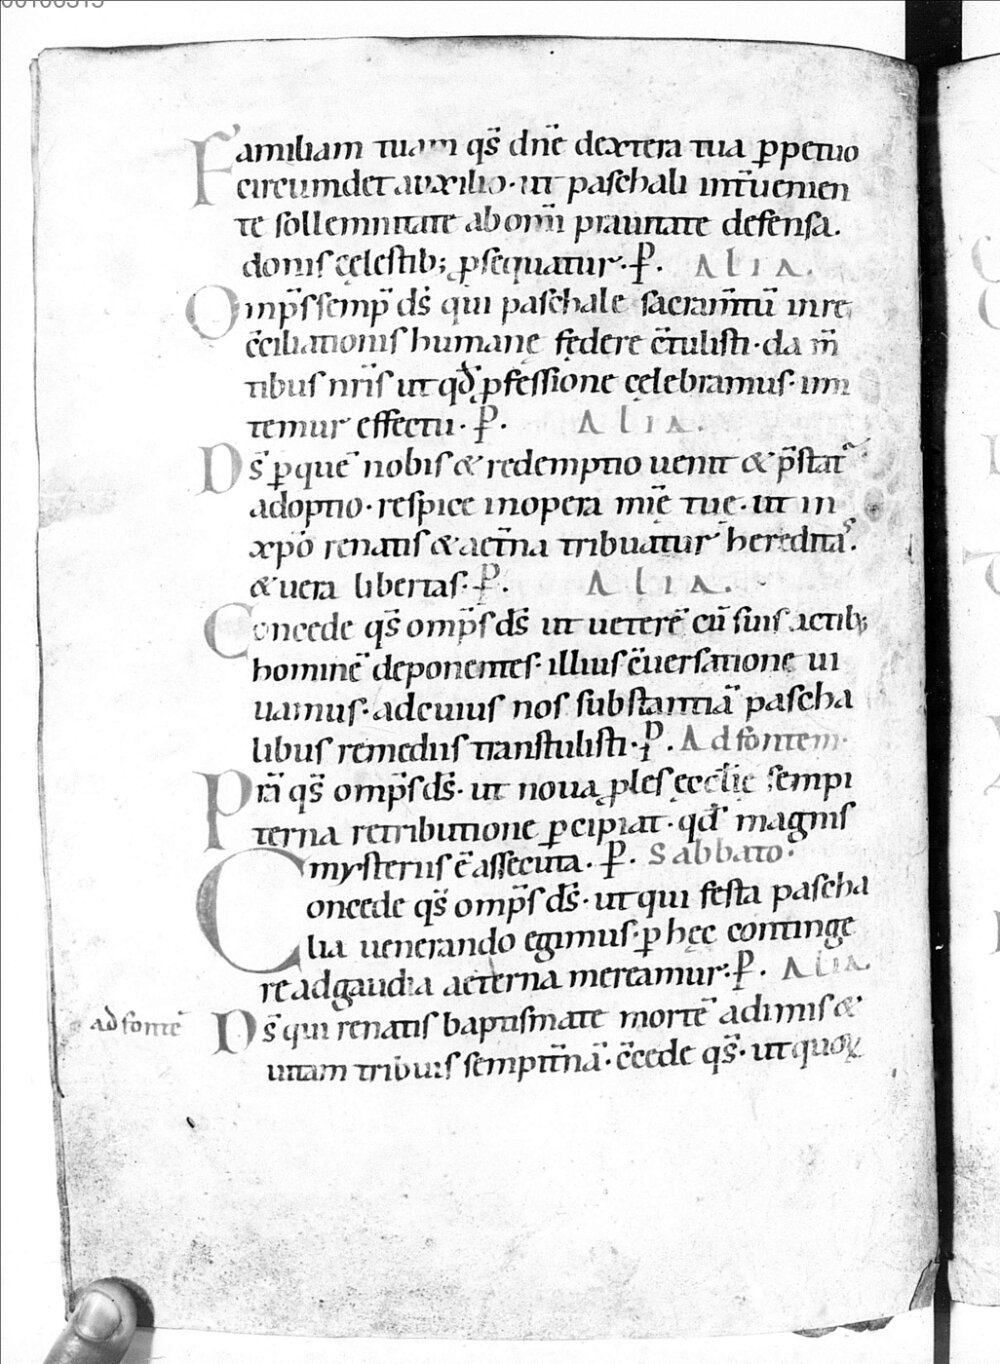 Familiam tuam qs̄ dn̄e dextera tua ꝑpetuo
circumdet auxilio · ut paschali int̄uenien
te sollemnitate ab om̄i prauitate defensa.
donis cęlestib; ꝓsequatur · P̄. ALIA.
Omp̄s semp̄ ds̄ qui paschale sacram̄tū in re
c̄ciliationis humanę fędere c̄tulisti · da m̄
tibus nr̄is ut qđ ꝓfessione cęlebramus · imi
temur effectu · P̄. ALIA.
Ds̄ ꝑ quē nobis & redemptio uenit & p̄stat̄
adoptio · respice in opera mīę tuę · ut in
xp̄o renatis & aet̄na tribuatur heredita͛s.
& uera libertas · P̄. ALIA.
Concede qs̄ omp̄s ds̄ ut ueterē cū suis actib;
hominē deponentes · illius c̄uersatione ui
uamus · ad cuius nos substantiā pascha
libus remediis transtulisti · P̄. Ad fontem ·
Prā qs̄ omp̄s ds̄ · ut noua ꝓles ęcclīę sempi
terna retributione ꝑcipiat · qđ magnis
mysteriis ē assecuta · P̄. Sabbato.
Concede qs̄ omp̄s ds̄ · ut qui festa pascha
lia uenerando egimus · ꝑ hęc continge
re ad gaudia aeterna mereamur · P̄. ALIA.
ad fontē
Ds̄ qui renatis baptismate mortē adimis &
uitam tribuis sempit̄nā · c̄cede qs̄ · ut quoꝝ